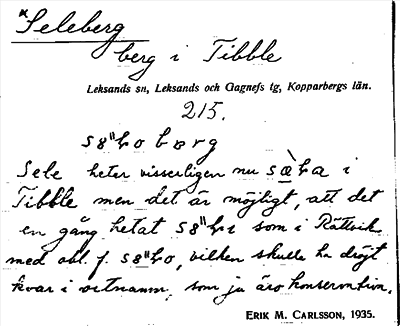 *Seleberg
berg i Tibble
Leksands sn, Leksands och Gagnefs tg, Kopparbergs län.
215.
Sele heter visserligen nu i
Tibble men det är möjligt, att det
en gång hetat som i Rättvik
med obl. f. vilken skulle ha dröjt
kvar i ortnamn, som ju äro konservativa.
ERIK M. CARLSSON, 1935.